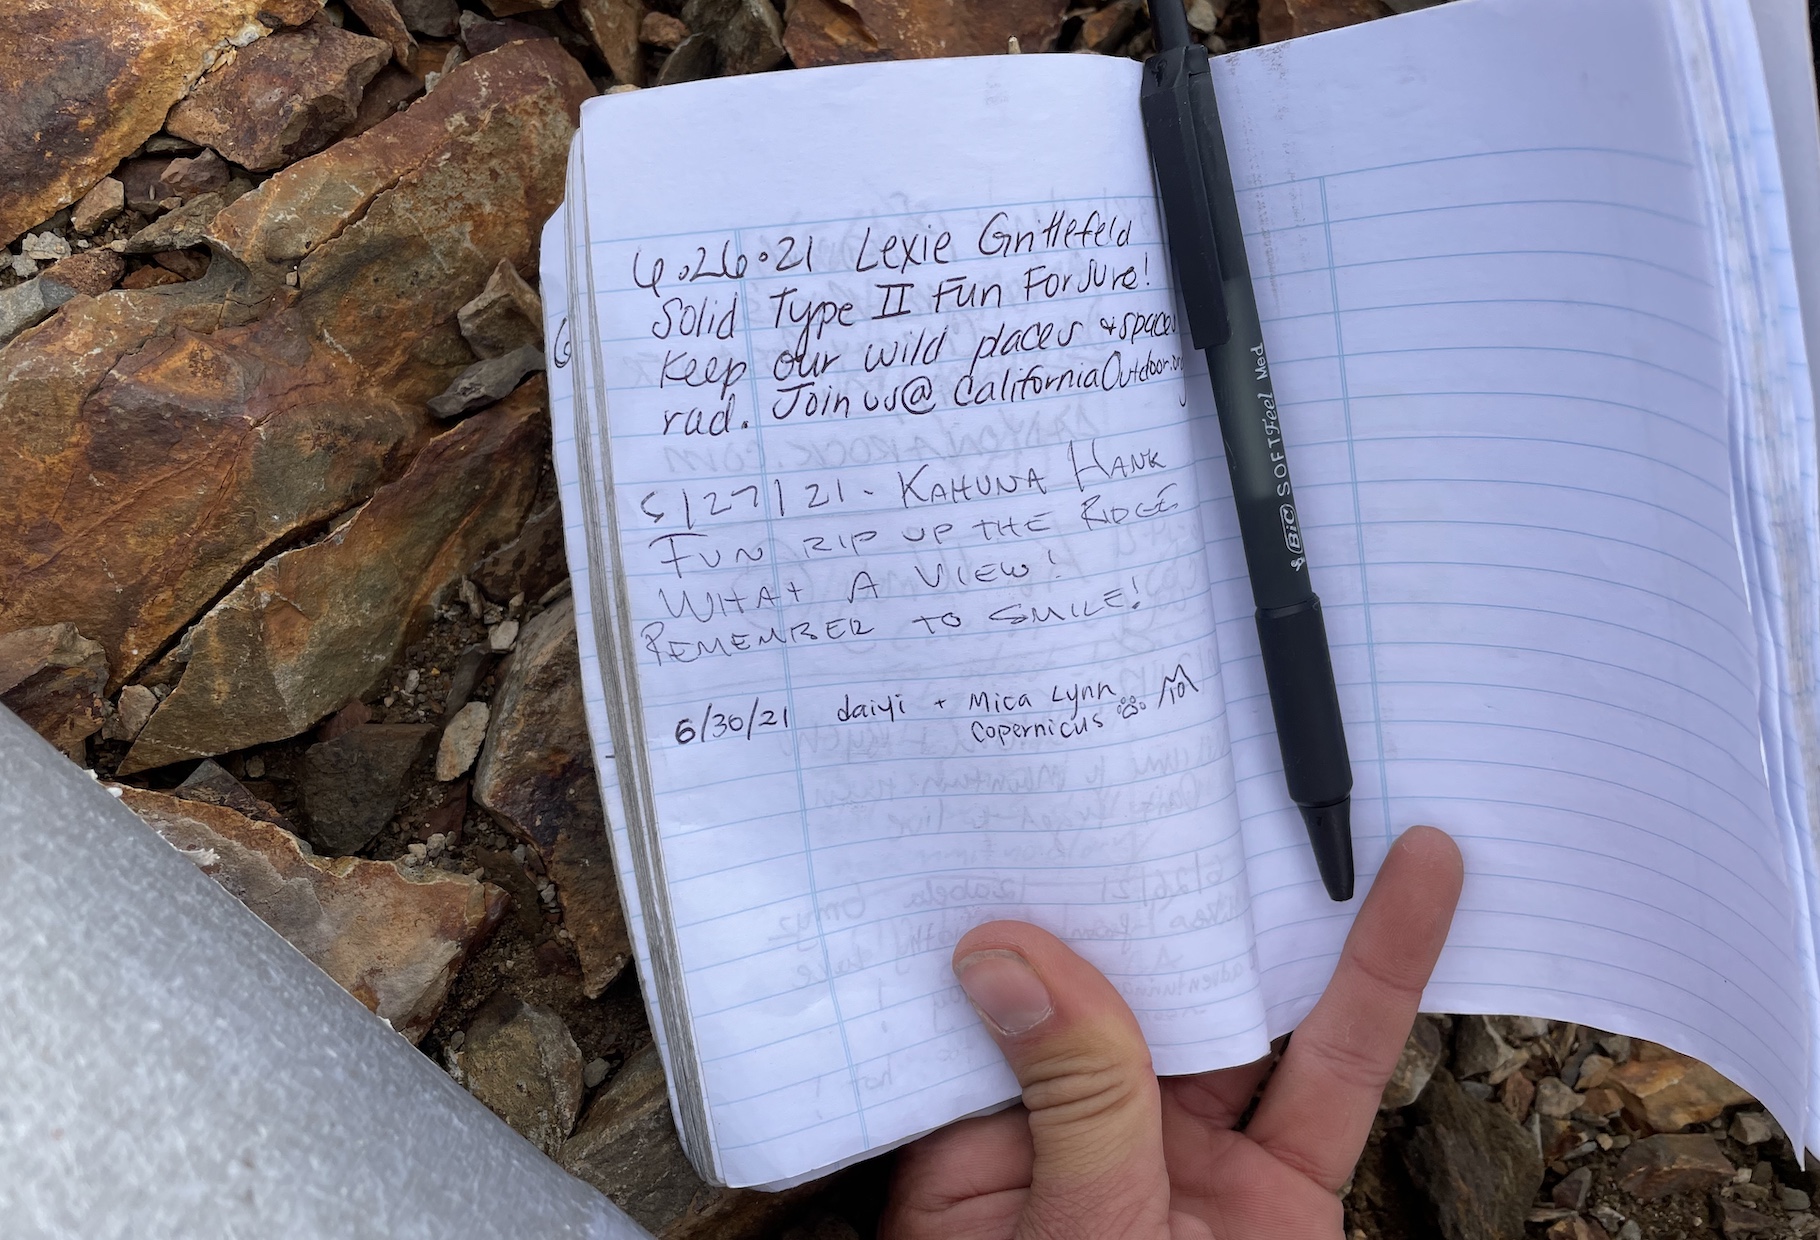 6.26.21 Lexie Grittlefeld
Solid Type II Fun For Sure!
Keep our wild places + spaces
rad. Join us @ CaliforniaOutdoor.org
5/27/21 - KAHUNA HANK
FUN RIP UP THE RIDGE
WHAT A VIEW!
REMEMBER TO SMILE!
6/30/21 daiyi + Mica Lynn
Copernicus
BiC SOFTFeel Med
6